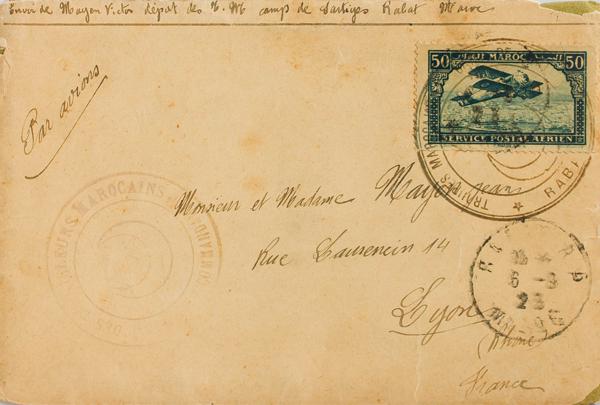 Envoi de Mayen Victor dépot des T. M camp de Lartiges Rabat Maroc
Par avions
50 MAROC 50
SERVICE POSTAL AÉRIEN
RABA
TIRAILLEURS MAROCAINS
DES
Monsieur et Madame Mayen Jean
Rue Laurencin 14
Lyon
(Rhône)
France
RA RP
6 - 3
23